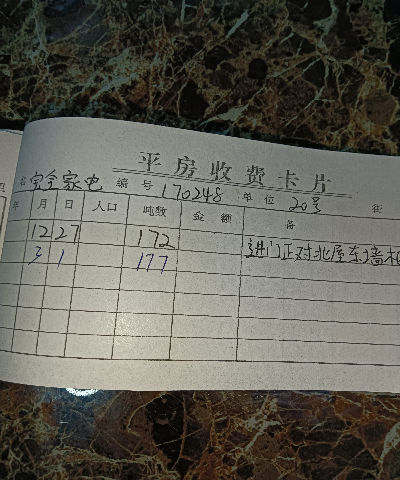 平房收费卡片
名 宝全家电 编号 170248 单位 20号 街
年 月 日 人口 吨数 金额 备
12 27 172 进门正对北屋东墙
3 1 177